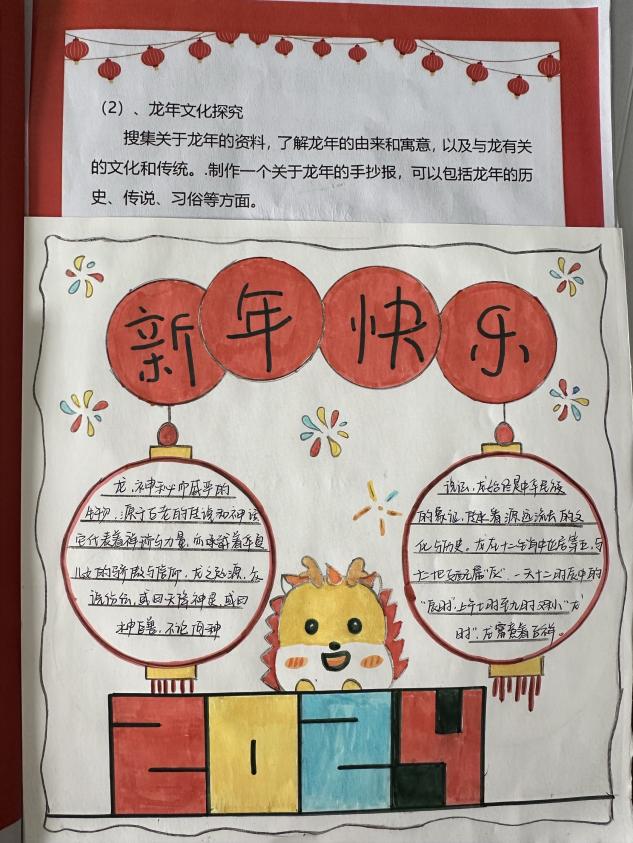 （2）、龙年文化探究
搜集关于龙年的资料，了解龙年的由来和寓意，以及与龙有关
的文化和传统。.制作一个关于龙年的手抄报，可以包括龙年的历
史、传说、习俗等方面。
新年快乐
龙，神秘而威严的
生物，源于古老的传说和神话
它代表着祥瑞与力量，承载着华夏
儿女的骄傲与信仰，龙之起源，众
说纷纭，或曰天降神灵，或曰
神兽，不论何种
说法，龙始终是中华民族
的象征，承载着源远流长的文
化与历史。龙在十二生肖中位居第五，与
十二地支配属"辰"，一天十二时辰中的
"辰时"上午七时至九时又称"龙
时"，龙寓意着吉祥。
2024